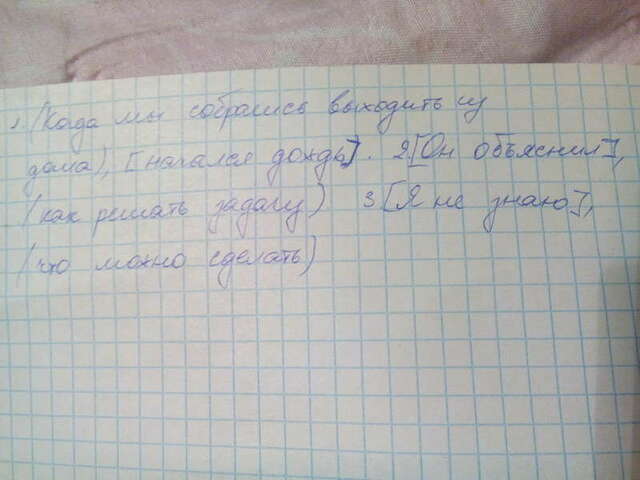 1 (Когда мы собрались выходить из
дома), [начался дождь]. 2[Он объяснил],
(как решать задачу) 3 [Я не знаю],
(что можно сделать)